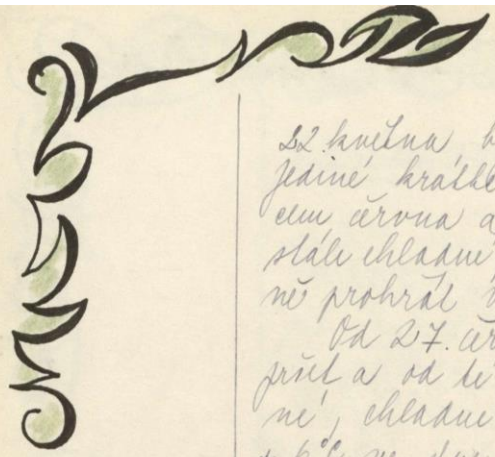 22. května b
jediné krátké
cem června a
stále chladne
ně prohrál
Od 27. čer
pršet a od té
né, chladne